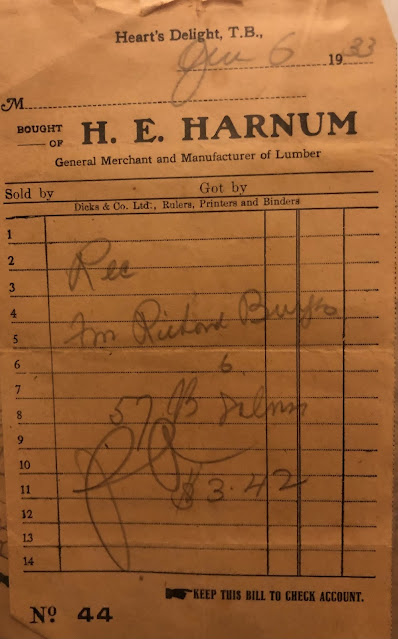 Heart's Delight, T.B.,
6 1933
M
BOUGHT OF H. E. HARNUM
General Merchant and Manufacturer of Lumber
Sold by Got by
Dicks & Co. Ltd., Rulers, Printers and Binders
1
2
Rec
3
4
Fm Richard
5
6 6
7
57 lb
8
9
10
$3.42
11
12
13
14
KEEP THIS BILL TO CHECK ACCOUNT.
No 44